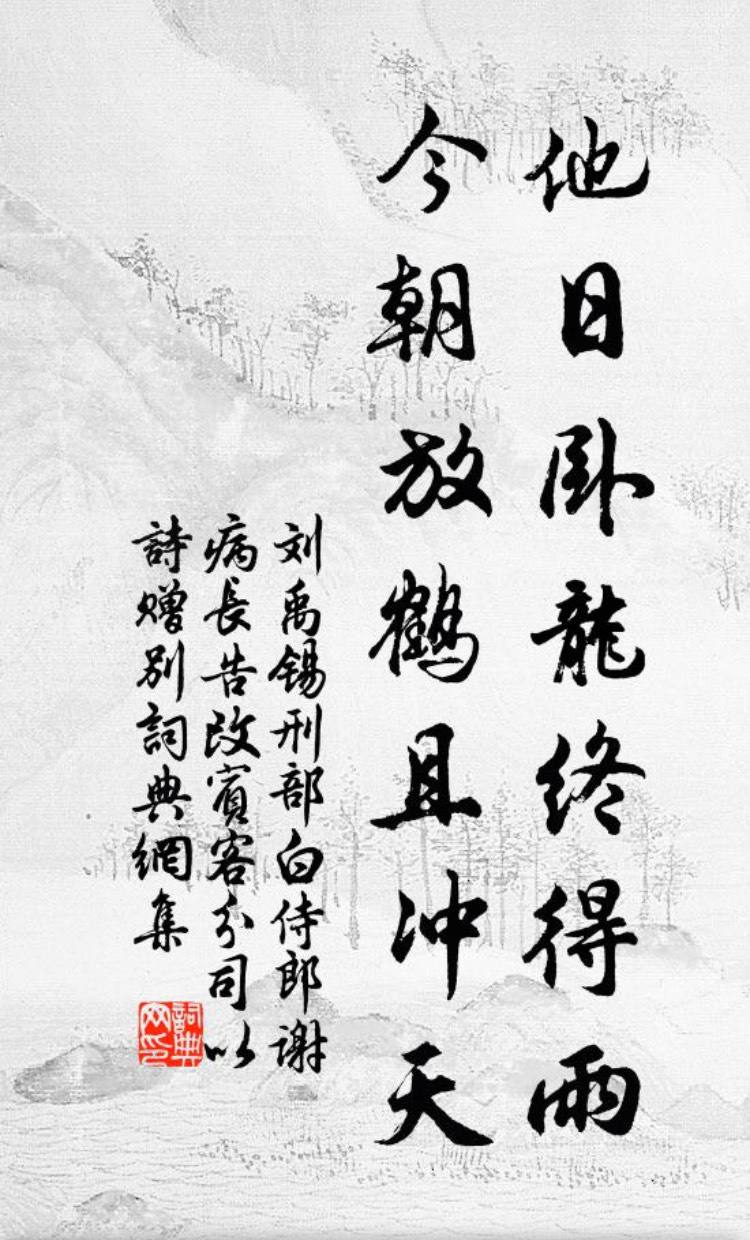 他日卧龍终得雨
今朝放鶴且冲天
刘禹锡刑部白侍郎谢
病長告改賓客分司以
詩赠别詞典網集
詞典
网印